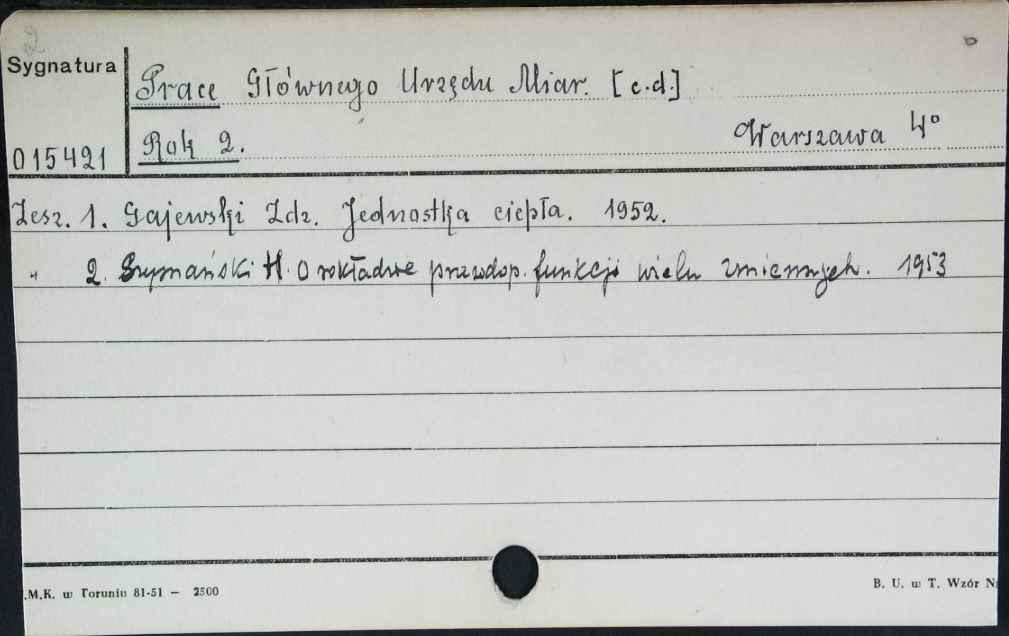 2
Sygnatura
Prace Głównego Urzędu Miar. [c.d.]
015421
Rok 2.
Warszawa 4°
Zesz. 1. Gajewski Zdz. Jednostka ciepła. 1952.
„ 2. Szymański H. O rozkładzie prawdop. funkcji wielu zmiennych. 1953
.M.K. w Toruniu 81-51 — 2500
B. U. w T. Wzór N